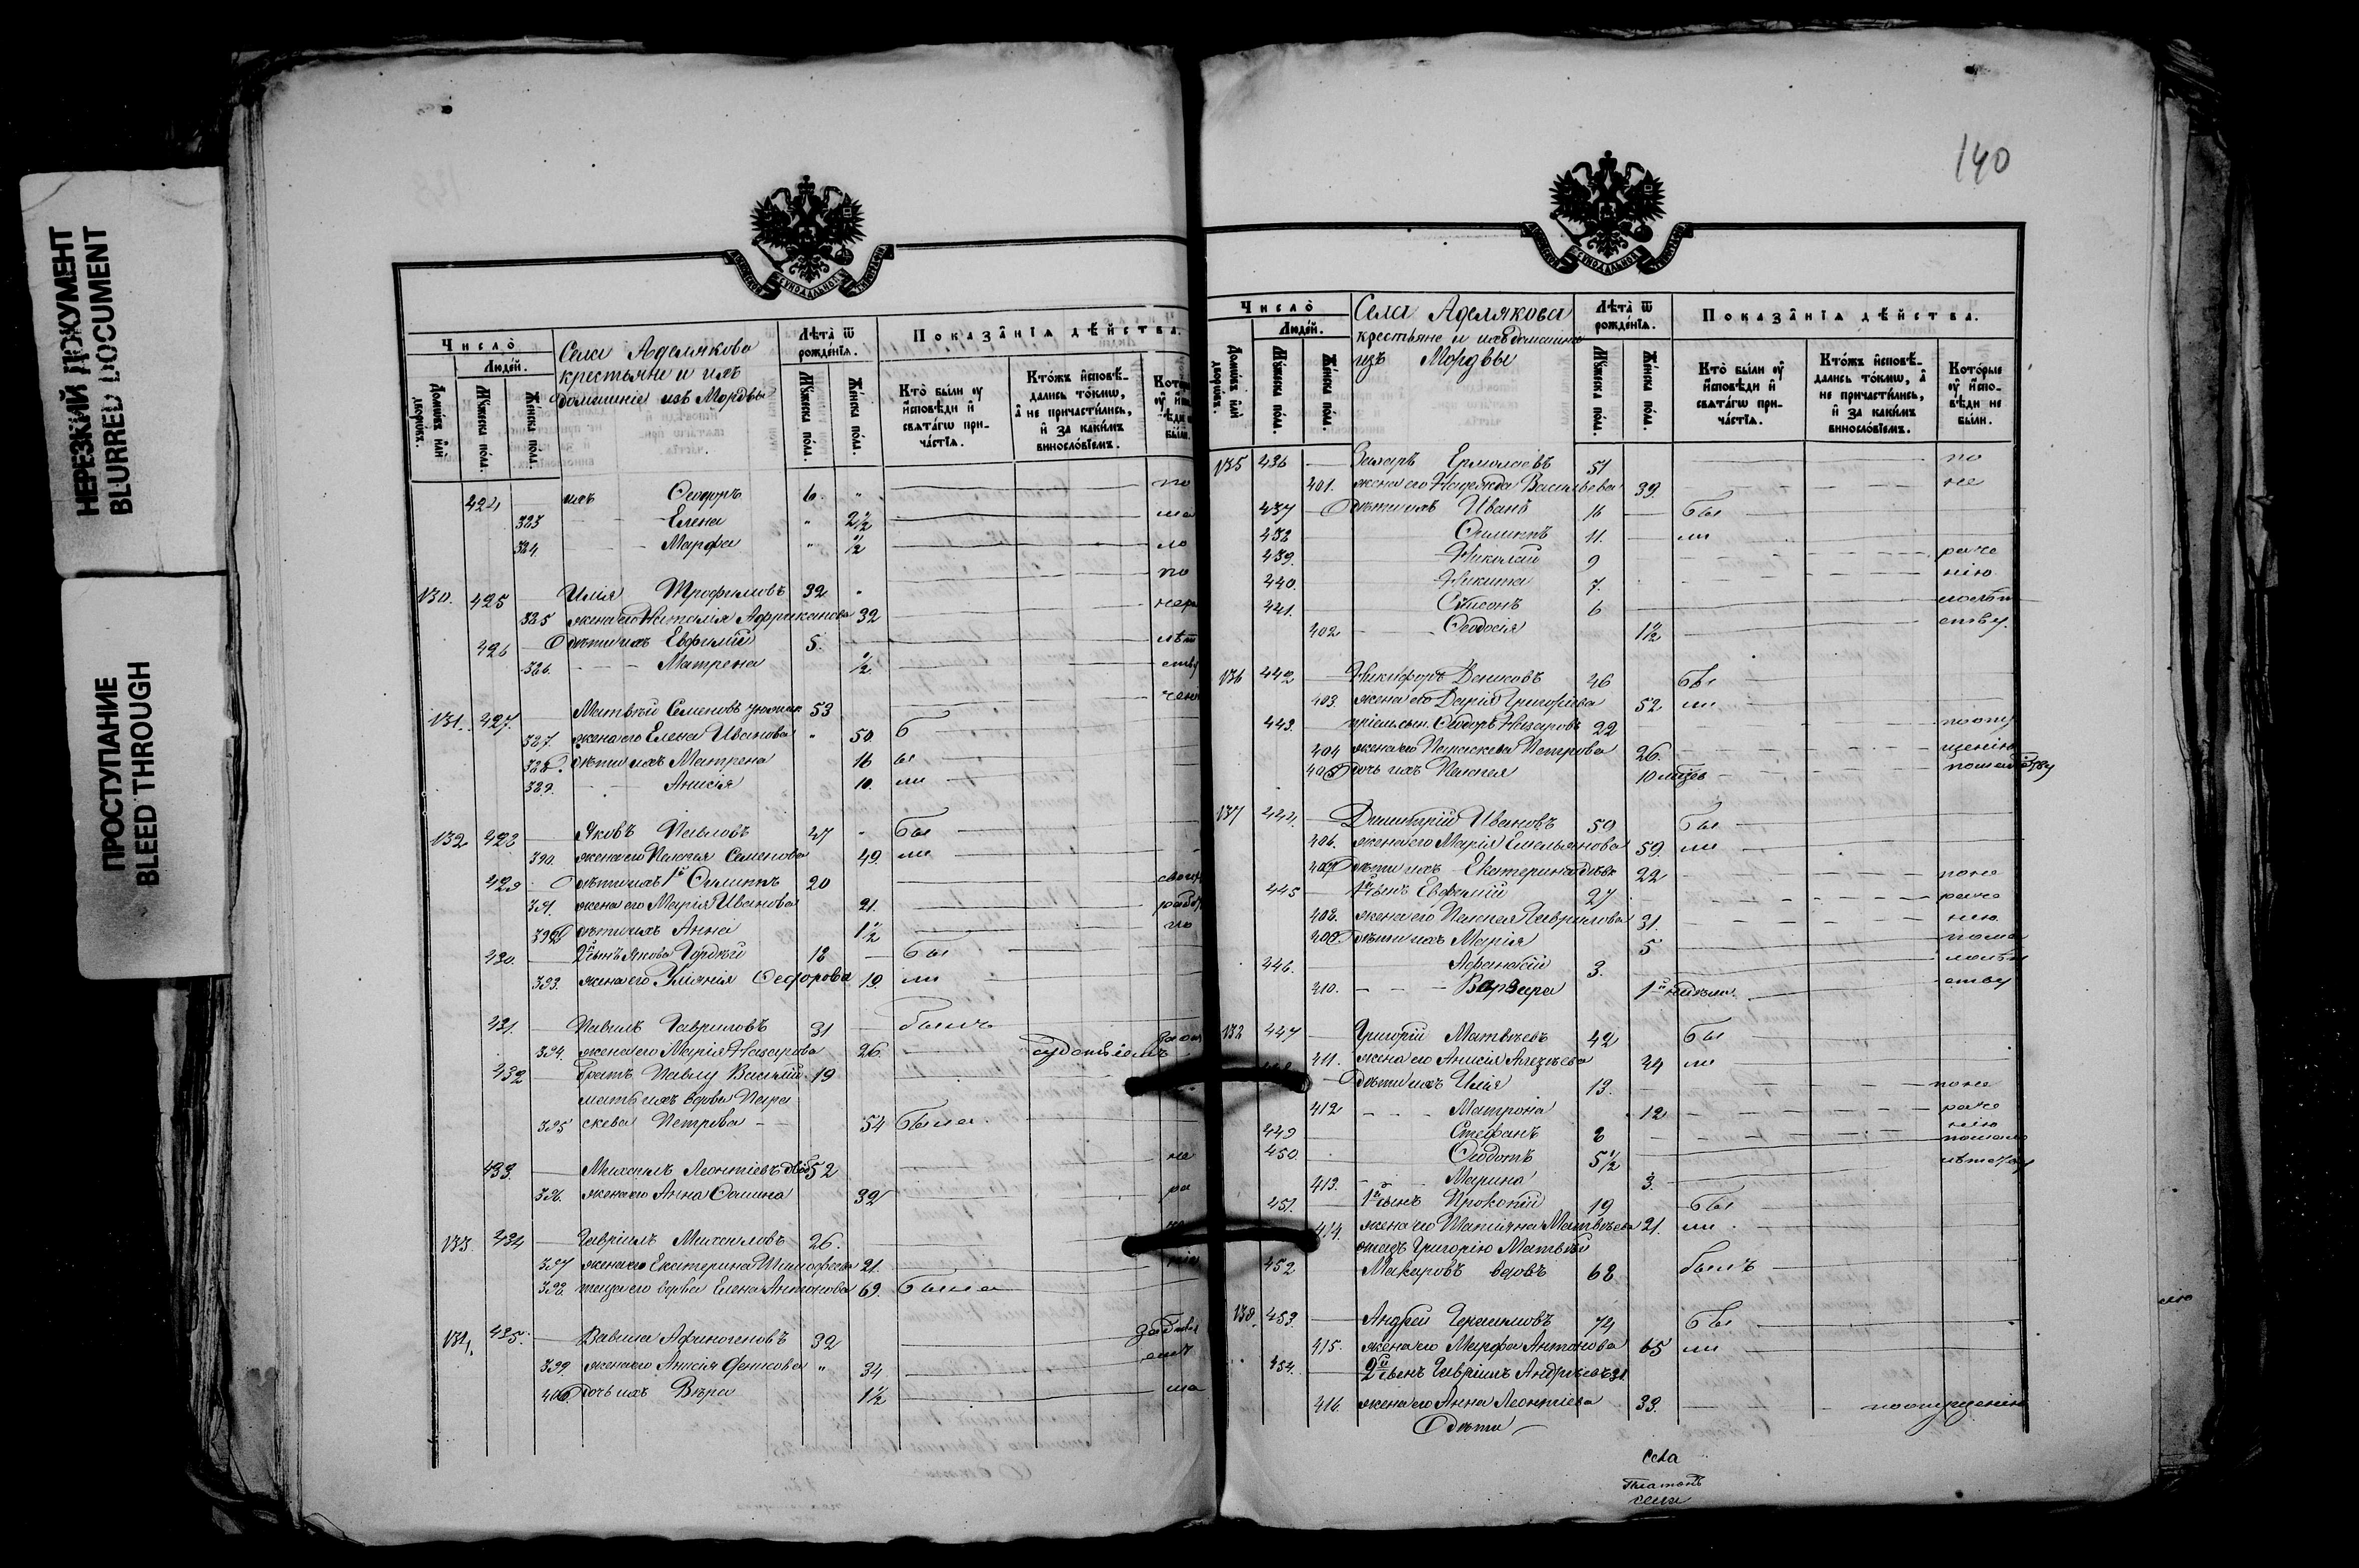 НЕРЕЗКИЙ ДОКУМЕНТ
BLURRED DOCUMENT
ПРОСТУПАНИЕ
BLEED THROUGH
Число̀
Людей.
Домѡвъ или дворѡвъ.
Мꙋжеска пола.
Женска пола.
Села Аделякова
крестьяне и ихъ
домашніе изъ Мордвы
Лѣта̀ ѿ рожденїѧ.
Мꙋжеска пола.
Женска пола.
Показанїѧ дѣйства.
Кто̀ были ᲂу исповѣди и свѧтагѡ причастїѧ.
Ктожъ исповѣдались токмѡ, а не причастились, и за какимъ винословїемъ.
424 ихъ Ѳеодоръ 6 "
383 Елена " 2½
384 Марфа " ½
130. 425 Илія Трофимовъ 32 "
385 жена его Наталія Африканова 32
426 Дѣти ихъ Евфимій 5
386. Матрена ½
131. 427. Матвѣй Семеновъ 53
387. жена его Елена Иванова " 50 б
388. дѣти ихъ Матрена 16 ы
389. Анисія 10. ли
132 428 Яковъ Павловъ 47 " бы
390. жена его Пелагея Семенова 49. ли
429 Дѣти ихъ 1й Филиппъ 20
391. жена его Марія Иванова 21.
392 Дѣти ихъ Анна 1½
430. 2й сынъ Якова Гордѣй 18 бы
393. жена его Уліянія Ѳеодорова 19. ли
431. Павелъ Гавриловъ 31 былъ
394. жена его Марія Назарова 26.
432 братъ Павлу Василій 19
мать ихъ вдова Пара
395 скева Петрова 54 была
433. Михаилъ Леонтіевъ 52 не
396. жена его Анна Ѳомина 32 ра
133. 434 Гавріилъ Михаиловъ 26.
397 жена его Екатерина Тимофеева 21.
398. теща его вдова Елена Антонова 69. была
134. 435. Вавила Афиногеновъ 32
399. жена его Анисія Денисова " 34
400. Дочь ихъ Вѣра 1½
140
Число̀
Людей.
Домѡвъ или дворѡвъ.
Мꙋжеска пола.
Женска пола.
Села Аделякова
крестьяне и ихъ домашніе
изъ Мордвы
Лѣта̀ ѿ рожденїѧ.
Мꙋжеска пола.
Женска пола.
Показанїѧ дѣйства.
Кто̀ были ᲂу исповѣди и свѧтагѡ причастїѧ.
Ктожъ исповѣдались токмѡ, а не причастились, и за какимъ винословїемъ.
Которые ᲂу исповѣди не были.
135 436 Захаръ Ермолаевъ 51 по
401. жена его Надежда Васильева 39. не
437 Дѣти ихъ Иванъ 16 бы
438 Филиппъ 11. ли
439. Николай 9 раче
440. Никита 7. нію
441. Сѵмеонъ 6
402 Ѳеодосія 1½ ству.
136 442 Никифоръ Денисовъ 46 бы
403. жена его Дарія Григорьева 52 ли
443. Ѳеодоръ Назаровъ 22
404 жена его Параскева Петрова 26.
405 Дочь ихъ Пелагея 10 мѣсяц
137 444. Димитрій Ивановъ 59 бы
406. жена его Марія Емельянова 59. ли
407 Дѣти ихъ Екатерина дѣва 22 поне
445 1й сынъ Евфимій 27 раче
408. жена его Пелагея Гаврилова 31. нію
409. Дѣти ихъ Марія 5 пома
446. Афанасій 3. лолѣт
410. Варвара 1й недѣли. ству
138 447 Григорій Матвѣевъ 42 бы
411. жена его Анисія Алексѣева 44 ли
448 Дѣти ихъ Илія 13. поне
412 Матрона 12 раче
449 Стефанъ 8 нію
450. Ѳеодотъ 5½
413. Марина 3.
451. 1й сынъ Прокопій 19 бы
414. жена его Татіяна Матвѣева 21. ли
отецъ Григорію Матвѣй
452 Макаровъ вдовъ 68 былъ
139. 453 Андрей Герасимовъ 74 бы
415. жена его Марфа Антонова 65 ли
454. 2й сынъ Гавріилъ Андреевъ 31
416. жена его Анна Леонтіева 33. поопущенію
Дѣти